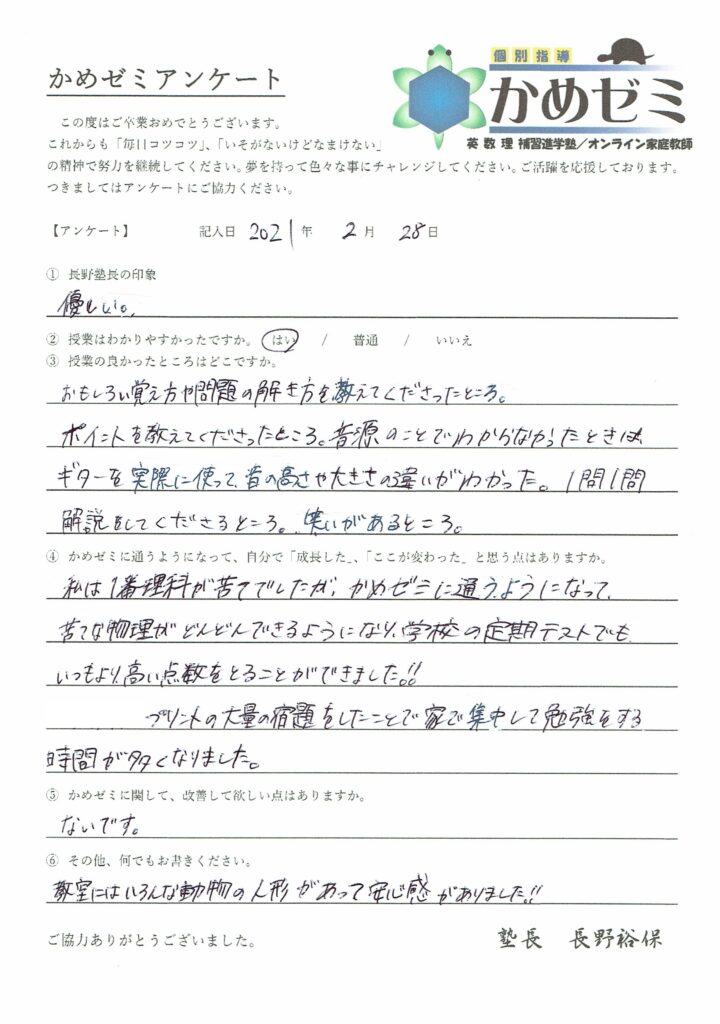 かめゼミアンケート
個別指導
かめゼミ
英 数 理 補習進学塾／オンライン家庭教師
この度はご卒業おめでとうございます。
これからも「毎日コツコツ」、「いそがないけどなまけない」
の精神で努力を継続してください。夢を持って色々な事にチャレンジしてください。ご活躍を応援しております。
つきましてはアンケートにご協力ください。
【アンケート】 記入日 2021 年 2 月 28 日
① 長野塾長の印象
優しい。
② 授業はわかりやすかったですか。 はい / 普通 / いいえ
③ 授業の良かったところはどこですか。
おもしろい覚え方や問題の解き方を教えてくださったところ。
ポイントを教えてくださったところ。音源のことでわからなかったときは、
ギターを実際に使って、音の高さや大きさの違いがわかった。1問1問
解説をしてくださるところ。笑いがあるところ。
④ かめゼミに通うようになって、自分で「成長した」、「ここが変わった」と思う点はありますか。
私は1番理科が苦手でしたが、かめゼミに通うようになって、
苦手な物理がどんどんできるようになり、学校の定期テストでも、
いつもより高い点数をとることができました!!
プリントの大量の宿題をしたことで家で集中して勉強をする
時間が多くなりました。
⑤ かめゼミに関して、改善して欲しい点はありますか。
ないです。
⑥ その他、何でもお書きください。
教室にはいろんな動物の人形があって安心感がありました!!
ご協力ありがとうございました。 塾長 長野裕保